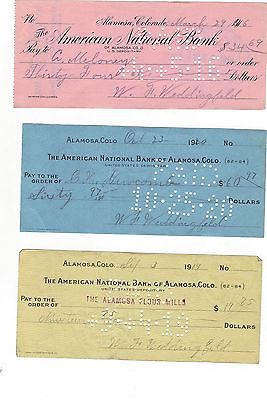 Alamosa, Colorado, March 29, 1915
The American National Bank
OF ALAMOSA, COLO.
U.S. DEPOSITARY
Pay to A. Meloney $34 69
or order
Thirty Four Dollars
W. F. Weddingfeld
ALAMOSA, COLO. Oct 23 1920
THE AMERICAN NATIONAL BANK OF ALAMOSA, COLO. (82-84)
UNITED STATES DEPOSITARY
PAY TO THE
ORDER OF $ 60 97
Sixty 97 DOLLARS
W F Weddingfeld
ALAMOSA, COLO. 1919
THE AMERICAN NATIONAL BANK OF ALAMOSA, COLO. (82-84)
UNITED STATES DEPOSITARY
PAY TO THE
ORDER OF THE ALAMOSA FLOUR MILLS $ 19 25
Nineteen 25 DOLLARS
W. F. Weddingfeld